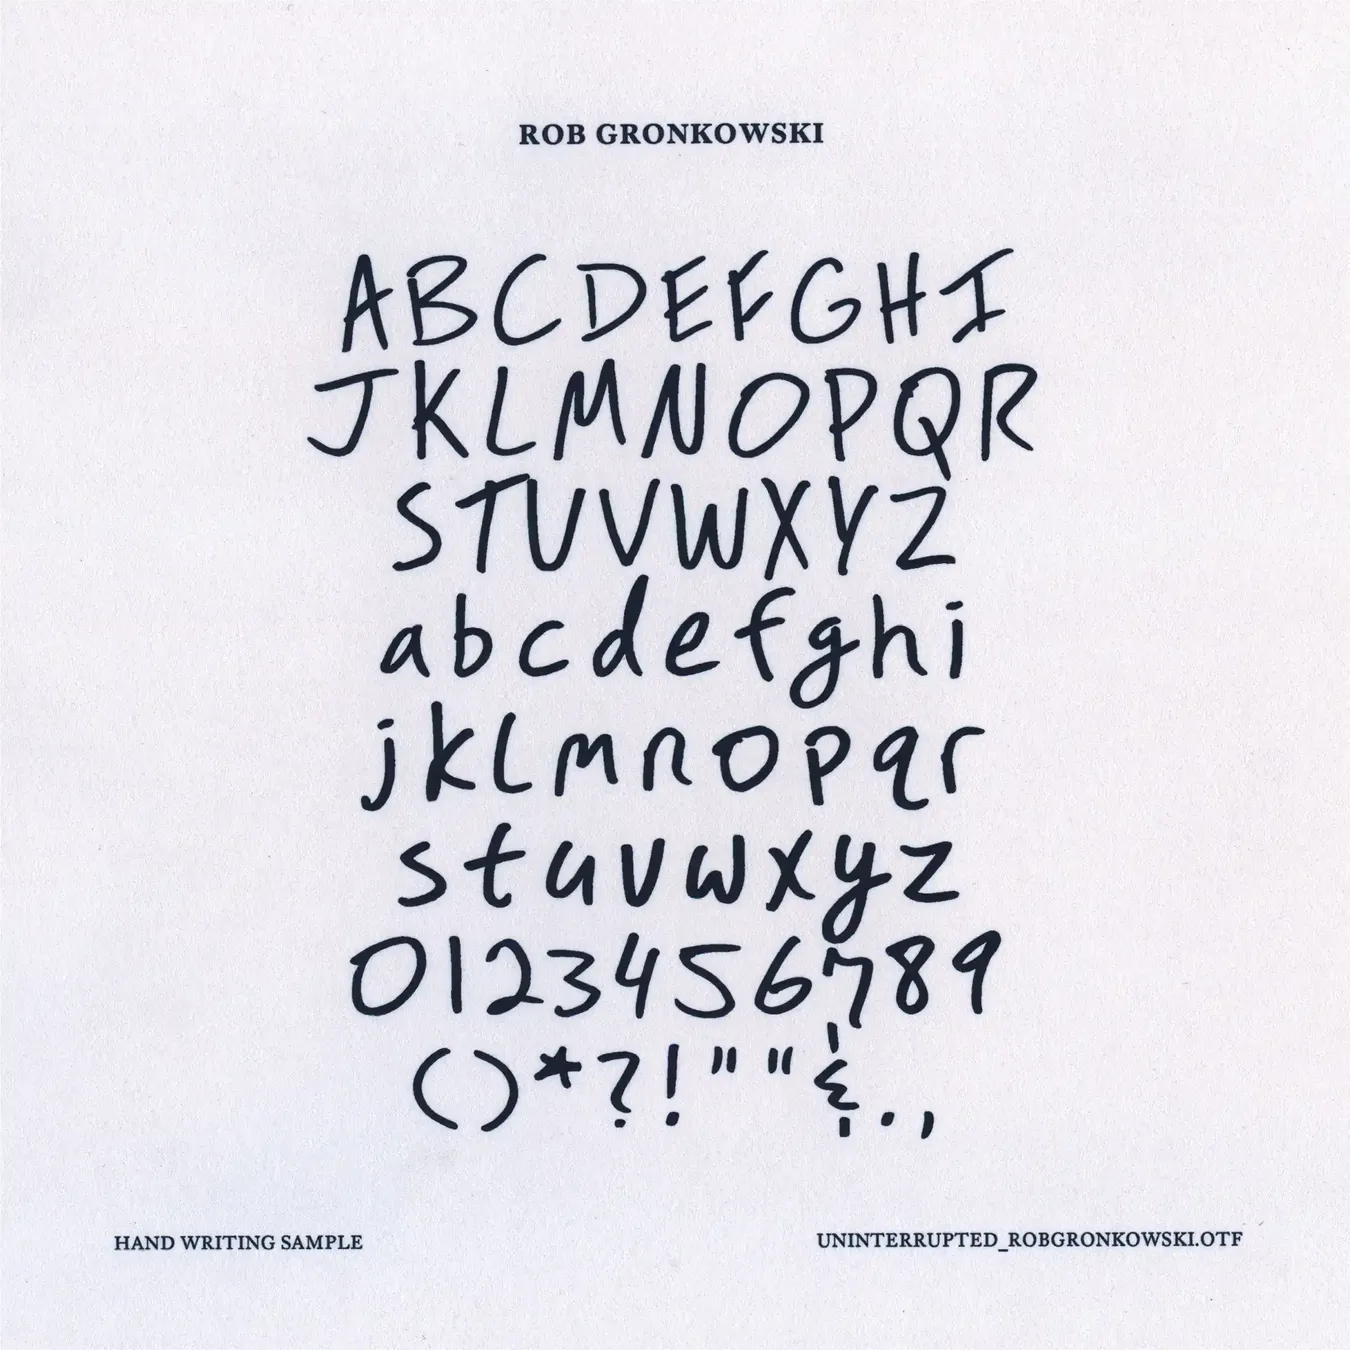 ROB GRONKOWSKI
ABCDEFGHI
JKLMNOPQR
STUVWXYZ
abcdefghi
jklmnopqr
stuvwxyz
0123456789
()*?!""&.,
HAND WRITING SAMPLE
UNINTERRUPTED_ROBGRONKOWSKI.OTF